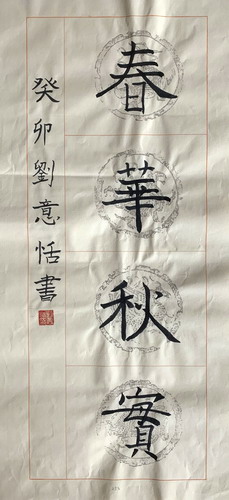 春華秋實
癸卯劉意恬書